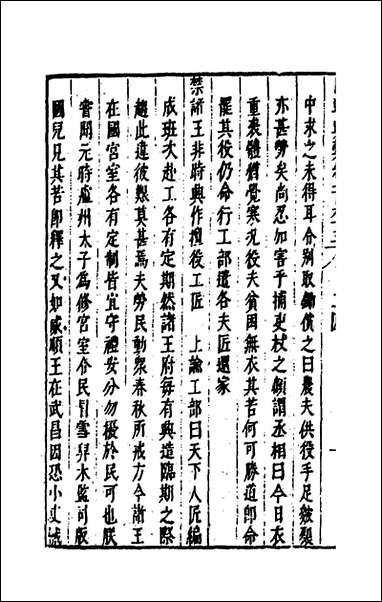 中求之未得耳命別取鋤償之曰農夫供役手足皴裂
亦甚勞矣尚忍加害乎捕吏杖之傾謂丞相曰今日衣
重裘體猶覺寒况役夫貧困無衣其苦何可勝道即命
罷其役仍命行工部遣各夫匠還家
禁諸王非時興作擅役工匠　上諭工部曰天下人匠編
成班次赴工各有定期然諸王府每有興造臨期之際
趨此違彼艱莫甚焉夫勞民動衆春秋所戒方今諸王
在國宮室各有定制皆宜守禮安分勿擾於民可也朕
嘗聞元時盧州太子為修宮室令民冒雪舁木監司版
國兒見其苦即釋之又如威順王在武昌因恐小丈城